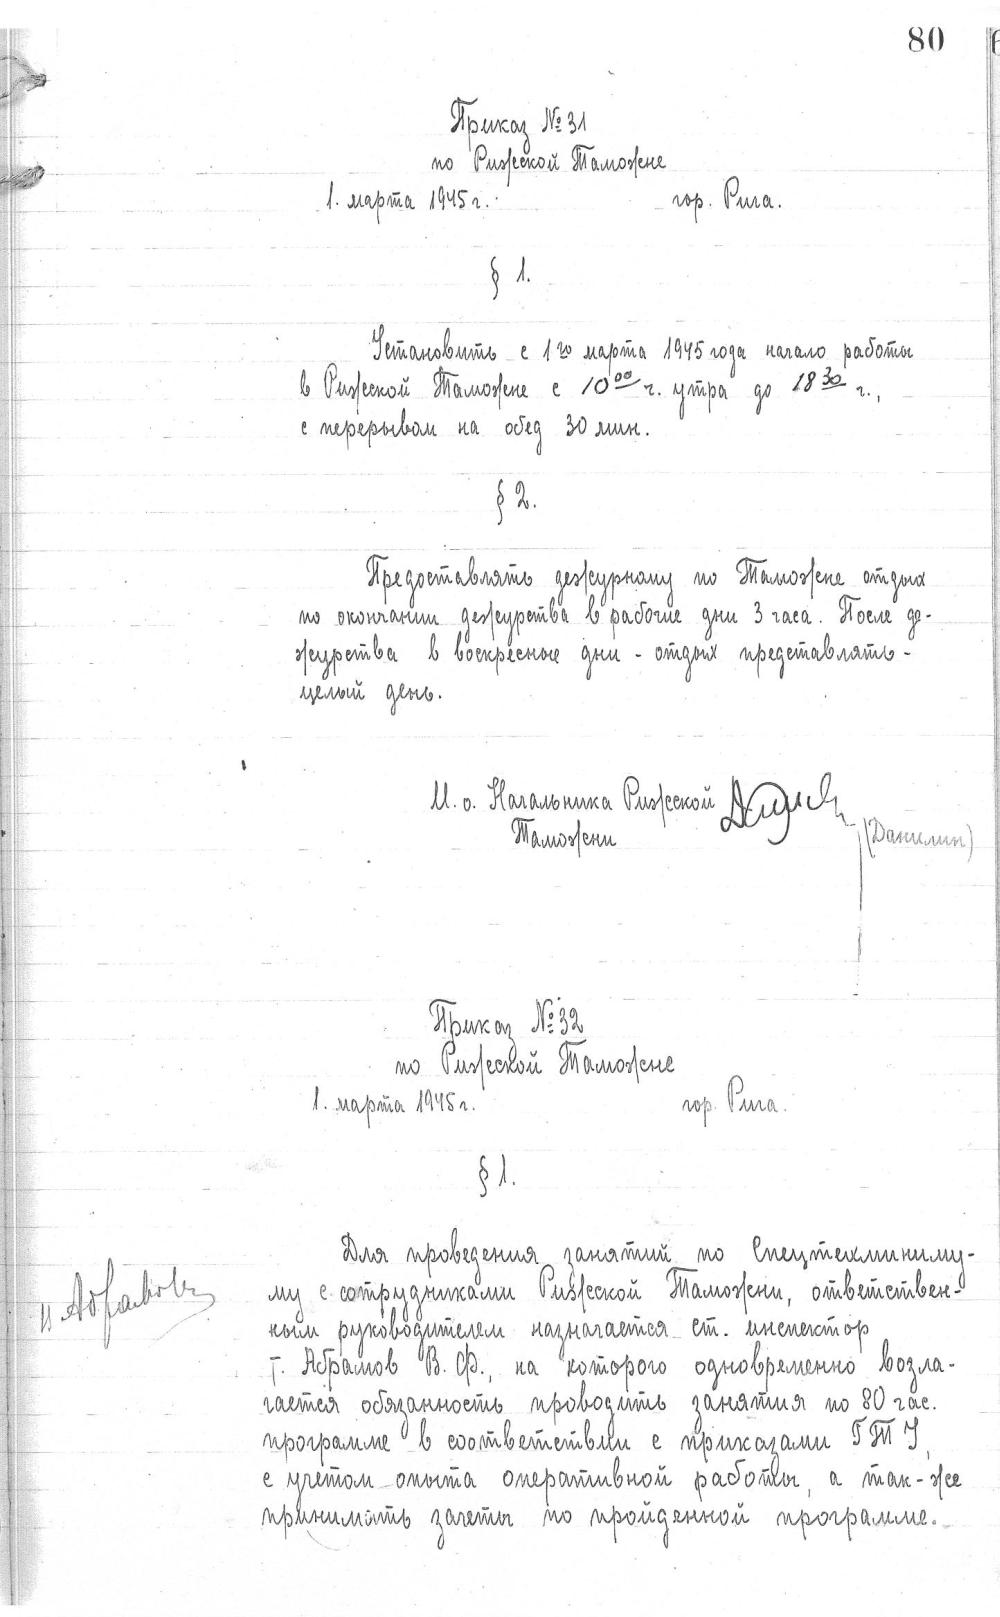 80
Приказ № 31
по Рижской Таможне
1. марта 1945 г. гор. Рига.
§ 1.
Установить с 1го марта 1945 года начало работы
в Рижской Таможне с 10 00 ч. утра до 18 30 ч.,
с перерывом на обед 30 мин.
§ 2.
Предоставлять дежурному по Таможне отдых
по окончании дежурства в рабочие дни 3 часа. После де-
журства в воскресные дни - отдых представлять -
целый день.
И. о. Начальника Рижской
Таможни
(Данилин)
Приказ № 32
по Рижской Таможне
1. марта 1945 г. гор. Рига.
§ 1.
Для проведения занятий по Спецтехминиму-
му с сотрудниками Рижской Таможни, ответствен-
ным руководителем назначается ст. инспектор
т. Абрамов В. Ф., на которого одновременно возла-
гается обязанность проводить занятия по 80 час.
программе в соответствии с приказами ГТУ,
с учетом опыта оперативной работы, а так-же
принимать зачеты по пройденной программе.
Абрамов